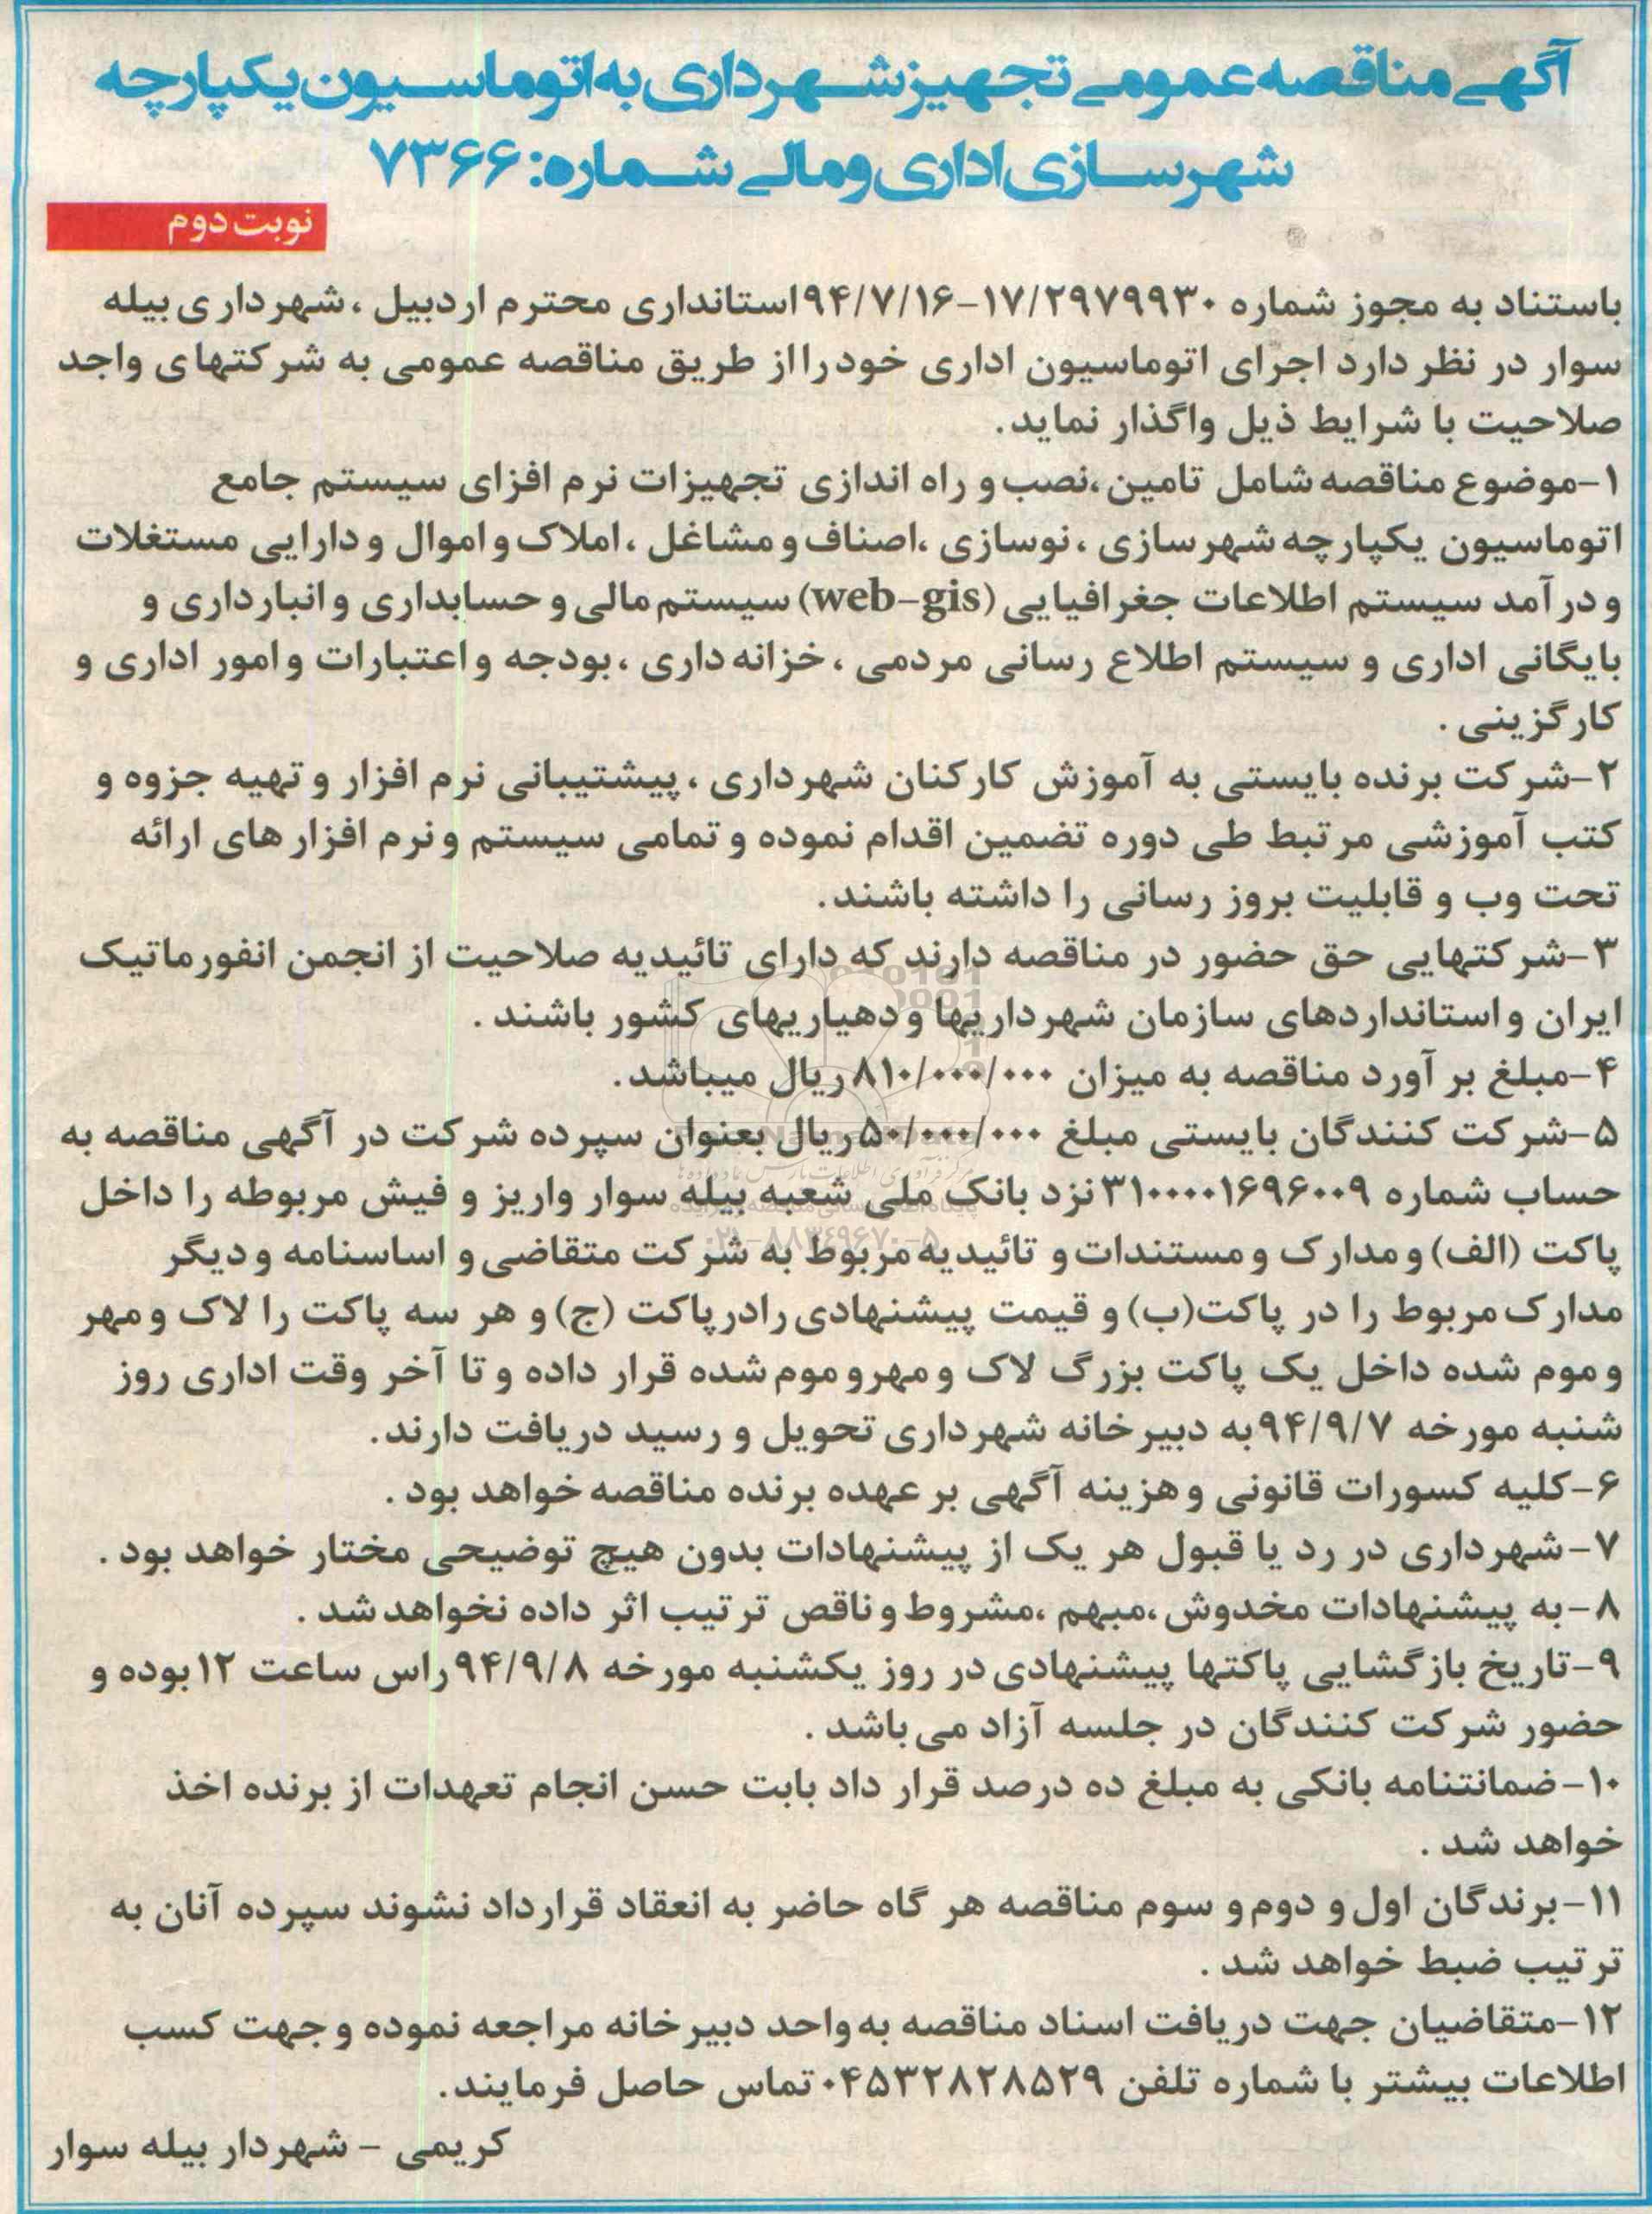 آگهی مناقصه عمومی تجهیز شهرداری به اتوماسیون یکپارچه
شهرسازی اداری و مالی شماره: ۷۳۶۶
نوبت دوم
باستناد به مجوز شماره ۱۷/۲۹۷۹۹۳۰-۹۴/۷/۱۶ استانداری محترم اردبیل ، شهرداری بیله
سوار در نظر دارد اجرای اتوماسیون اداری خود را از طریق مناقصه عمومی به شرکتهای واجد
صلاحیت با شرایط ذیل واگذار نماید.
۱-موضوع مناقصه شامل تامین ،نصب و راه اندازی تجهیزات نرم افزای سیستم جامع
اتوماسیون یکپارچه شهرسازی ، نوسازی ،اصناف و مشاغل ، املاک و اموال و دارایی مستغلات
و درآمد سیستم اطلاعات جغرافیایی (web-gis) سیستم مالی و حسابداری و انبارداری و
بایگانی اداری و سیستم اطلاع رسانی مردمی ، خزانه داری ، بودجه و اعتبارات و امور اداری و
کارگزینی .
۲-شرکت برنده بایستی به آموزش کارکنان شهرداری ، پیشتیبانی نرم افزار و تهیه جزوه و
کتب آموزشی مرتبط طی دوره تضمین اقدام نموده و تمامی سیستم و نرم افزار های ارائه
تحت وب و قابلیت بروز رسانی را داشته باشند.
۳-شرکتهایی حق حضور در مناقصه دارند که دارای تائیدیه صلاحیت از انجمن انفورماتیک
ایران و استانداردهای سازمان شهرداریها و دهیاریهای کشور باشند .
۴-مبلغ بر آورد مناقصه به میزان ۸۱۰/۰۰۰/۰۰۰ ریال میباشد.
۵-شرکت کنندگان بایستی مبلغ ۵۰/۰۰۰/۰۰۰ ریال بعنوان سپرده شرکت در آگهی مناقصه به
حساب شماره ۳۱۰۰۰۰۱۶۹۶۰۰۹ نزد بانک ملی شعبه بیله سوار واریز و فیش مربوطه را داخل
پاکت (الف) و مدارک و مستندات و تائیدیه مربوط به شرکت متقاضی و اساسنامه و دیگر
مدارک مربوط را در پاکت(ب) و قیمت پیشنهادی رادر پاکت (ج) و هر سه پاکت را لاک و مهر
و موم شده داخل یک پاکت بزرگ لاک و مهر و موم شده قرار داده و تا آخر وقت اداری روز
شنبه مورخه ۹۴/۹/۷ به دبیرخانه شهرداری تحویل و رسید دریافت دارند.
۶-کلیه کسورات قانونی و هزینه آگهی بر عهده برنده مناقصه خواهد بود .
۷-شهرداری در رد یا قبول هر یک از پیشنهادات بدون هیچ توضیحی مختار خواهد بود .
۸-به پیشنهادات مخدوش ،مبهم ،مشروط و ناقص ترتیب اثر داده نخواهد شد .
۹-تاریخ بازگشایی پاکتها پیشنهادی در روز یکشنبه مورخه ۹۴/۹/۸ راس ساعت ۱۲ بوده و
حضور شرکت کنندگان در جلسه آزاد می باشد .
۱۰-ضمانتنامه بانکی به مبلغ ده درصد قرار داد بابت حسن انجام تعهدات از برنده اخذ
خواهد شد .
۱۱-برندگان اول و دوم و سوم مناقصه هر گاه حاضر به انعقاد قرارداد نشوند سپرده آنان به
ترتیب ضبط خواهد شد .
۱۲-متقاضیان جهت دریافت اسناد مناقصه به واحد دبیرخانه مراجعه نموده و جهت کسب
اطلاعات بیشتر با شماره تلفن ۰۴۵۳۲۸۲۸۵۲۹ تماس حاصل فرمایند.
کریمی - شهردار بیله سوار